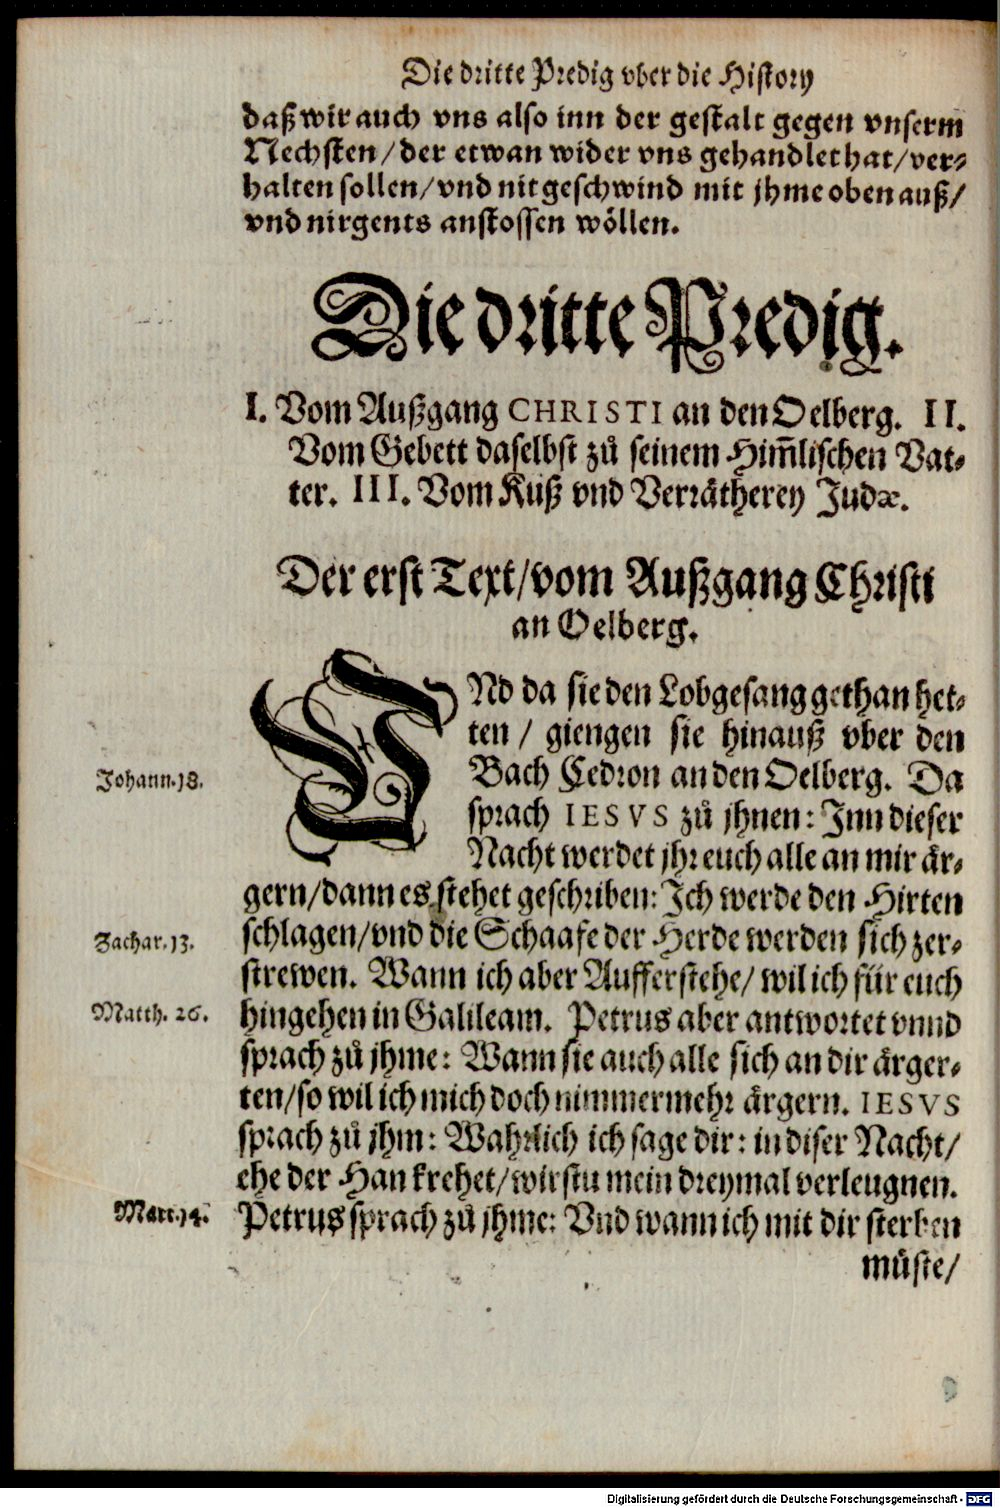 Die dritte Predig vber die History
daß wir auch vns also inn der gestalt gegen vnserm
Nechsten/ der etwan wider vns gehandlet hat/ ver-
halten sollen/ vnd nit geschwind mit jhme oben auß/
vnd nirgents anstossen wöllen.
Die dritte Predig.
I. Vom Außgang CHRISTI an den Oelberg. II.
Vom Gebett daselbst zuͦ seinem Him̃lischen Vat-
ter. III. Vom Kuß vnd Verrätherey Judæ.
Der erst Text/ vom Außgang Christi
an Oelberg.
VNd da sie den Lobgesang gethan het-
ten / giengen sie hinauß vber den
Johann.18.
Bach Cedron an den Oelberg. Da
sprach IESVS zuͦ jhnen: Inn dieser
Nacht werdet jhr euch alle an mir är-
gern/ dann es stehet geschriben: Ich werde den Hirten
Zachar.13.
schlagen/ vnd die Schaafe der Herde werden sich zer-
strewen. Wann ich aber Aufferstehe/ wil ich für euch
Matth. 26.
hingehen in Galileam. Petrus aber antwortet vnnd
sprach zuͦ jhme: Wann sie auch alle sich an dir ärger-
ten/ so wil ich mich doch nimmermehr ärgern. IESVS
sprach zuͦ jhm: Wahrlich ich sage dir: in diser Nacht/
ehe der Han krehet/ wirstu mein dreymal verleugnen.
Marc.14.
Petrus sprach zuͦ jhme: Vnd wann ich mit dir sterben
müste/
Digitalisierung gefördert durch die Deutsche Forschungsgemeinschaft - DFG